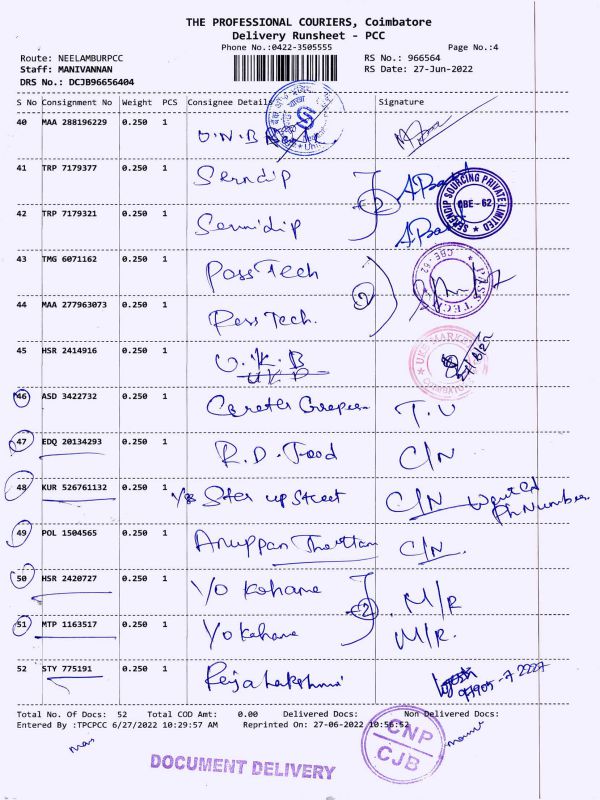 THE PROFESSIONAL COURIERS, Coimbatore
Delivery Runsheet - PCC
Phone No.:0422-3505555 Page No.:4
Route: NEELAMBURPCC RS No.: 966564
Staff: MANIVANNAN RS Date: 27-Jun-2022
DRS No.: DCJB96656404
S No Consignment No Weight PCS Consignee Details Signature
40 MAA 288196229 0.250 1 U.N.B
41 TRP 7179377 0.250 1 Serndip
42 TRP 7179321 0.250 1
SERENDIP SOURCING PRIVATE LIMITED
CBE - 62
43 TMG 6071162 0.250 1 Pass Tech
44 MAA 277963073 0.250 1 Pass Tech. 2
PASS TECH CBE-62
45 HSR 2414916 0.250 1 U.K.B
UKB
46 ASD 3422732 0.250 1 T.U
47 EDQ 20134293 0.250 1 R.D. Food C/N
48 KUR 526761132 0.250 1 Step up Street C/N Wanted
Ph Number
49 POL 1504565 0.250 1 Anuppan Thottam C/N.
50 HSR 2420727 0.250 1 Yo Kohame M/R
51 MTP 1163517 0.250 1 Yokahame M/R.
52 STY 775191 0.250 1 Rejalakshmi
Total No. Of Docs: 52 Total COD Amt: 0.00 Delivered Docs: Non Delivered Docs:
Entered By :TPCPCC 6/27/2022 10:29:57 AM Reprinted On: 27-06-2022 10:56:52
CNP
CJB
DOCUMENT DELIVERY